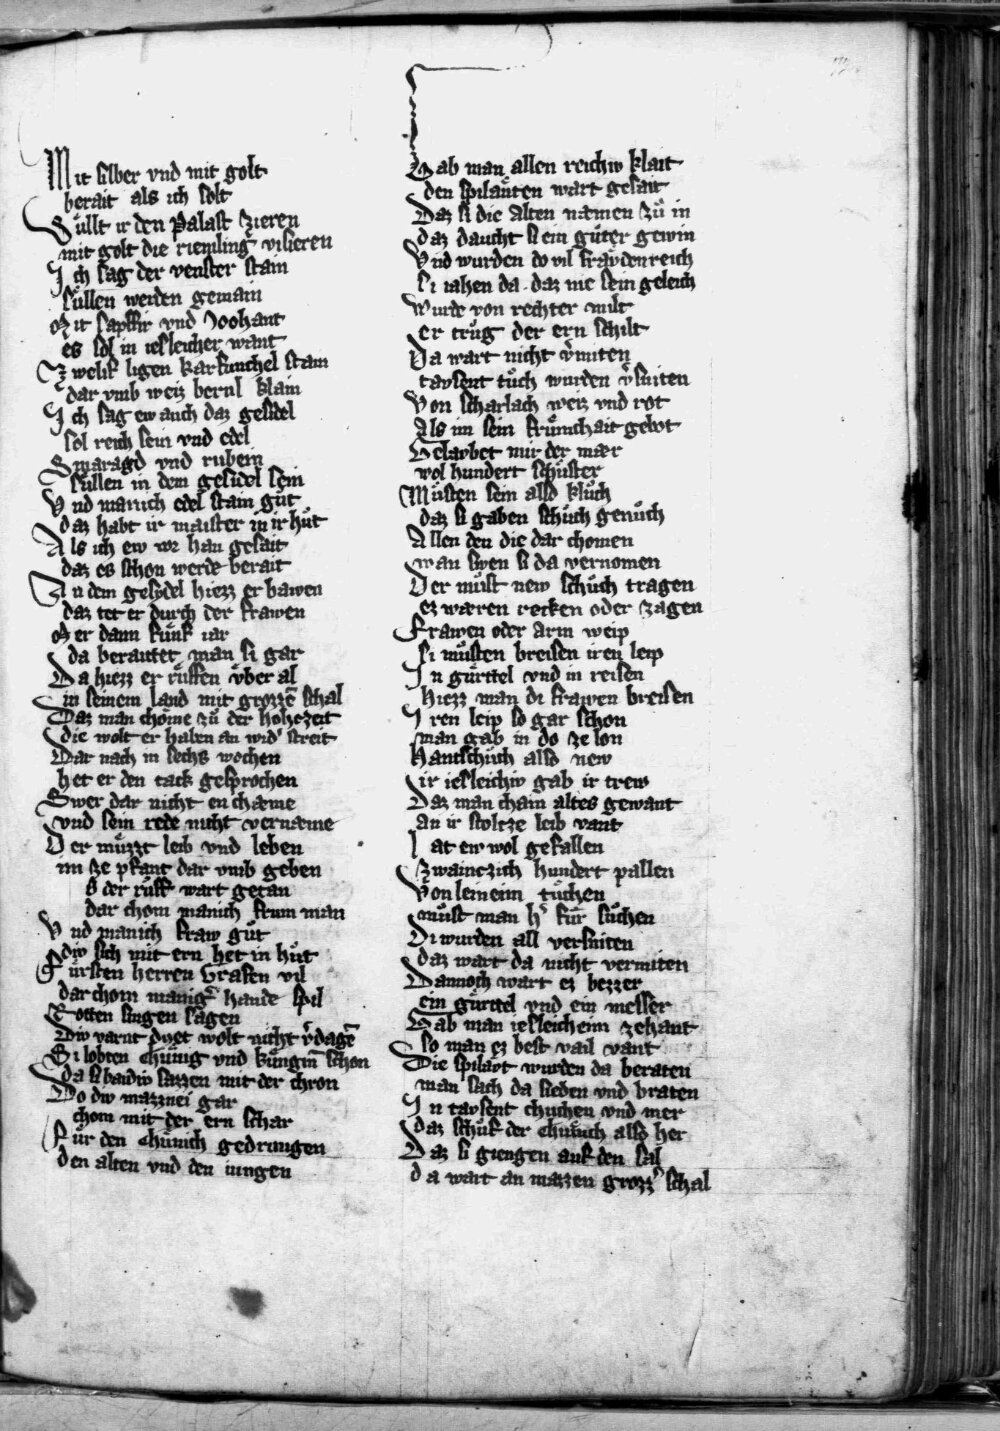 Mit silber vnd mit golt
berait als ich solt
Süllt ir den Palast zieren
mit golt die riemling visieren
Ich sag der venster stain
süllen werden gemain
Mit saphir vnd Joohant
es sol in iesleicher want
Zwelif ligen karfunchel stain
dar vmb weiz beryl klain
Ich sag ew auch daz gesidel
sol reich sein vnd edel
Smaragd vnd rubein
süllen in dem gesidel sein
Vnd manich edel stain gůt
daz habt ir maister in ir hůt
Als ich ew vor han gesait
daz es schon werde berait
An dem gesydel hiezz er bawen
daz tet er durch der frawen
Mer dann fünf iar
da berautet man si gar
Da hiezz er růffen vber al
in seinem land mit grozzē schal
Daz man chöme zů der hohczeit
die wolt er haben an wid' streit
Dar nach in sechs wochen
het er den tack gesprochen
Swer dar nicht en chæme
vnd sein rede nicht vernæme
Der můzzt leib vnd leben
im ze pfant dar vmb geben
So der růff wart getan
dar chom manich frum man
Vnd manich fraw gůt
diw sich mit ern het in hůt
Fürsten herren Grafen vil
dar chom manig' hande spil
Rotten singen sagen
Diw varnt dyet wolt nicht v'dagē
Si lobten chünig vnd küngiñ schon
da si baidiw sazzen mit der chron
Do diw mazznei gar
chom mit der ern schar
Für den chünich gedrungen
den alten vnd den iungen
Gab man allen reichiw klait
den spilaüten wart gesait
Daz si die alten næmen zů in
daz daucht si ein gůter gewin
Vnd wurden do vil fraydenreich
si iahen da daz nie sein geleich
Wurde von rechter milt
er trůg der ern schilt
Da wart nicht v'miten
tavsent tůch wurden v'sniten
Von scharlach weiz vnd rot
Als im sein frümchait gebot
Gelaybet mir der mær
wol hundert schůster
Můsten sein also klůch
daz si gaben schůch genůch
Allen den die dar chomen
wan swen si da vernomen
Der můst new schůch tragen
ez wæren recken oder zagen
Frawen oder arm weip
si můsten breisen iren leip
In gürttel vnd in reisen
hiezz man di frawen breisen
Iren leip so gar schon
man gab in do ze lon
Hantschůch also new
ir iesleichiw gab ir trew
Daz man chain altes gewant
an ir stoltze leib vant
Lat ew wol gefallen
zwainczich hundert pallen
Von leineim tůchen
můst man h' für sůchen
Di wurden all versniten
daz wart da nicht vermiten
Dannoch wart ez bezzer
ein gürttel vnd ein messer
Gab man iesleicheim zehant
so man ez best vail vant
Die spilävt wurden da beraten
man sach da sieden vnd braten
In tavsent chuchen vnd mer
daz schůf der chünich also her
Daz si giengen auf den sal
da wart an mazzen grozz' schal